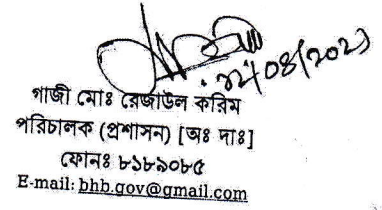 গাজী মোঃ রেজাউল করিম
পরিচালক (প্রশাসন) [অঃ দাঃ]
ফোনঃ ৮১৮৯০৮৫
E-mail: bhb.gov@gmail.com